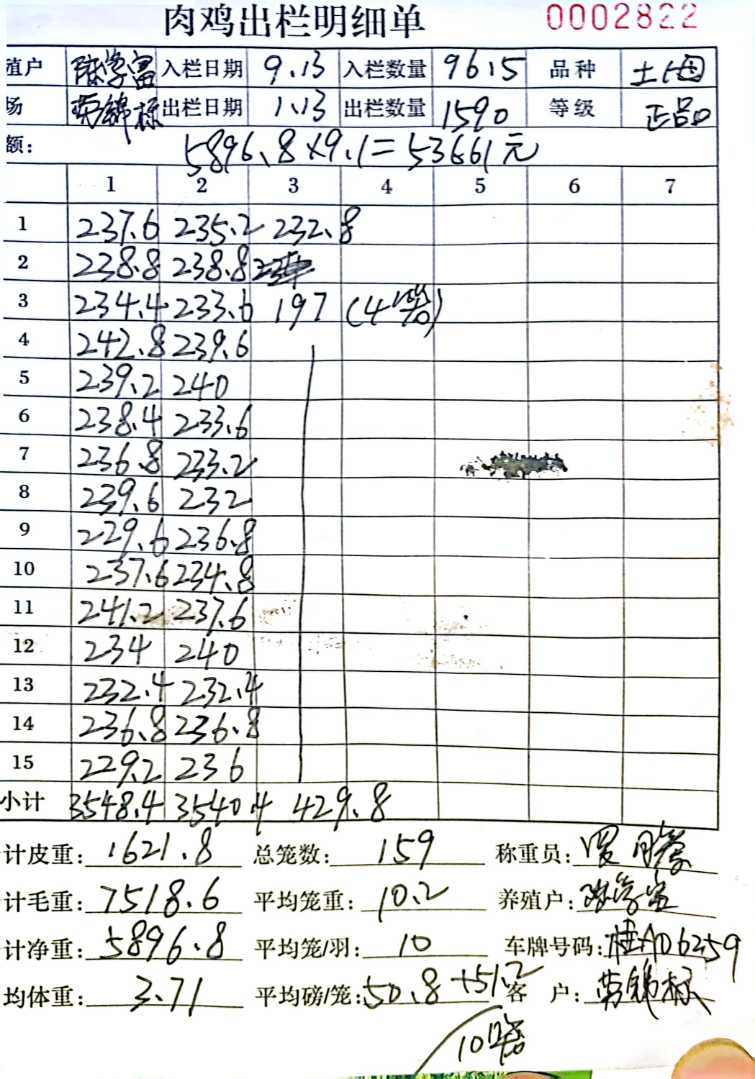 肉鸡出栏明细单 0002822
殖户 陈学富 入栏日期 9.13 入栏数量 9615 品种 土1母
场 劳锦标 出栏日期 1.13 出栏数量 1590 等级 正品
额: 5896.8×9.1=53661元
1 2 3 4 5 6 7
1 237.6 235.2 232.8
2 238.8 238.8
3 234.4 233.6 197 (4笼)
4 242.8 239.6
5 239.2 240
6 238.4 233.6
7 236.8 233.2
8 239.6 232
9 229.6 236.8
10 237.6 234.8
11 241.2 237.6
12 234 240
13 232.4 232.4
14 236.8 236.8
15 229.2 236
小计 3548.4 3540.4 429.8
计皮重: 1621.8 总笼数: 159 称重员:
计毛重: 7518.6 平均笼重: 10.2 养殖户: 陈学富
计净重: 5896.8 平均笼/羽: 10 车牌号码: 桂A06259
均体重: 3.71 平均磅/笼: 50.8 +51.2 客户: 劳锦标
10笼